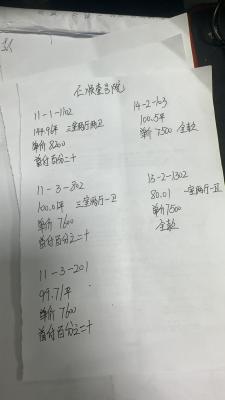 11-1-1102
144.96平 三室两厅两卫
单价 8200
首付百分之二十
11-3-802
100.01平 三室两厅一卫
单价 7600
首付百分之二十
11-3-201
99.71平
单价 7600
首付百分之二十
14-2-103
100.5平
单价 7500 全款
15-2-1302
80.01 一室两厅一卫
单价7500
全款